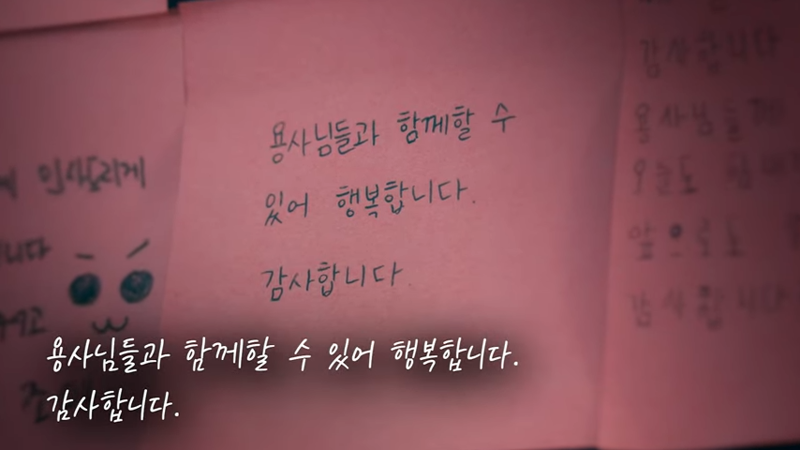 용사님들과 함께할 수
있어 행복합니다.
감사합니다.
인사드리게
니다
감사합니다
용사님들께
오늘도
앞으로도
감사합니다
용사님들과 함께할 수 있어 행복합니다.
감사합니다.